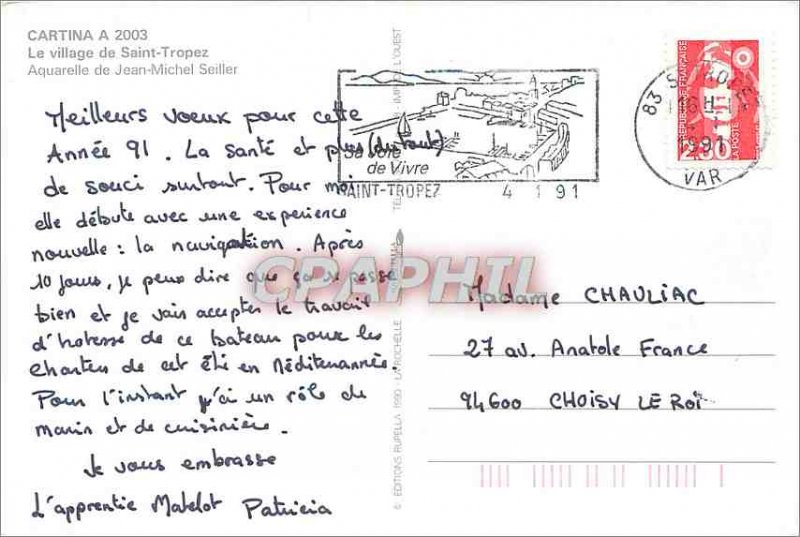 CARTINA A 2003
Le village de Saint-Tropez
Aquarelle de Jean-Michel Seiller
Meilleurs voeux pour cette
Année 91. La santé et plus (du tout)
de souci surtout. Pour moi
elle débute avec une experience
nouvelle : la navigation. Après
10 jours, je peux dire que ça se passe
bien et je vais accepter le travail
d'hotesse de ce bateau pour les
charters de cet été en Méditerrannée.
Pour l'instant j'ai un rôle de
marin et de cuisinière.
Je vous embrasse
L'apprentie Matelot Patricia
Sa Voie
de Vivre
SAINT-TROPEZ 4 1 91
83 ST TROPEZ
16H
1991
VAR
RÉPUBLIQUE FRANÇAISE
2.30
LA POSTE
© EDITIONS RUPELLA 1990 - LA ROCHELLE
L'OUEST
CPAPHIL
Madame CHAULIAC
27 av. Anatole France
94600 CHOISY LE ROI